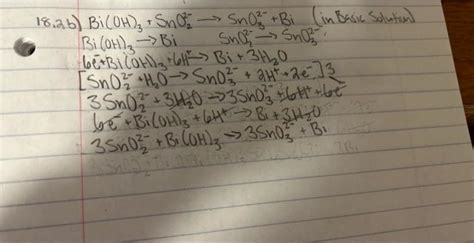 18.2b) Bi(OH)₃ + SnO₂²⁻ → SnO₃²⁻ + Bi (in Basic Solution)
Bi(OH)₃ → Bi SnO₂²⁻ → SnO₃²⁻
6e⁻ + Bi(OH)₃ + 6H⁺ → Bi + 3H₂O
[SnO₂²⁻ + H₂O → SnO₃²⁻ + 2H⁺ + 2e⁻] 3
3SnO₂²⁻ + 3H₂O → 3SnO₃²⁻ + 6H⁺ + 6e⁻
6e⁻ + Bi(OH)₃ + 6H⁺ → Bi + 3H₂O
3SnO₂²⁻ + Bi(OH)₃ → 3SnO₃²⁻ + Bi